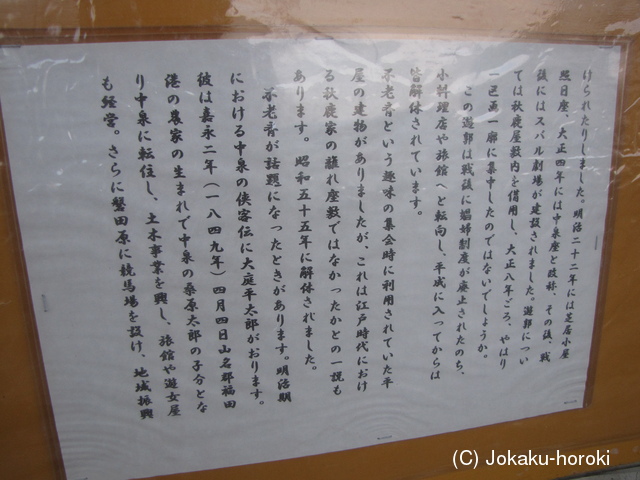 けられたりしました。明治二十二年には芝居小屋
照日座、大正四年には中泉座と改称、その後、戦
後にはスバル劇場が建設されました。遊郭につい
ては秋鹿屋敷内を借用し、大正八年ごろ、やはり
一色面一廓に集中したのではないでしょうか。
この遊郭は戦後に娼婦制度が廃止されたのち、
小料理店や旅館へと転向し、平成に入ってからは
皆解体されています。
不老斉という趣味の集会時に利用されていた平
屋の建物がありましたが、これは江戸時代におけ
る秋鹿家の離れ座敷ではなかったかとの一説も
あります。昭和五十五年に解体されました。
不老斉が話題になったときがあります。明治期
における中泉の侠客伝に大庭平太郎がおります。
彼は嘉永二年（一八四九年）四月四日山名郡福田
港の農家の生まれで中泉の桑原太郎の子分とな
り中泉に転住し、土木事業を興し、旅館や遊女屋
も経営。さらに磐田原に競馬場を設け、地域振興
(C) Jokaku-horoki